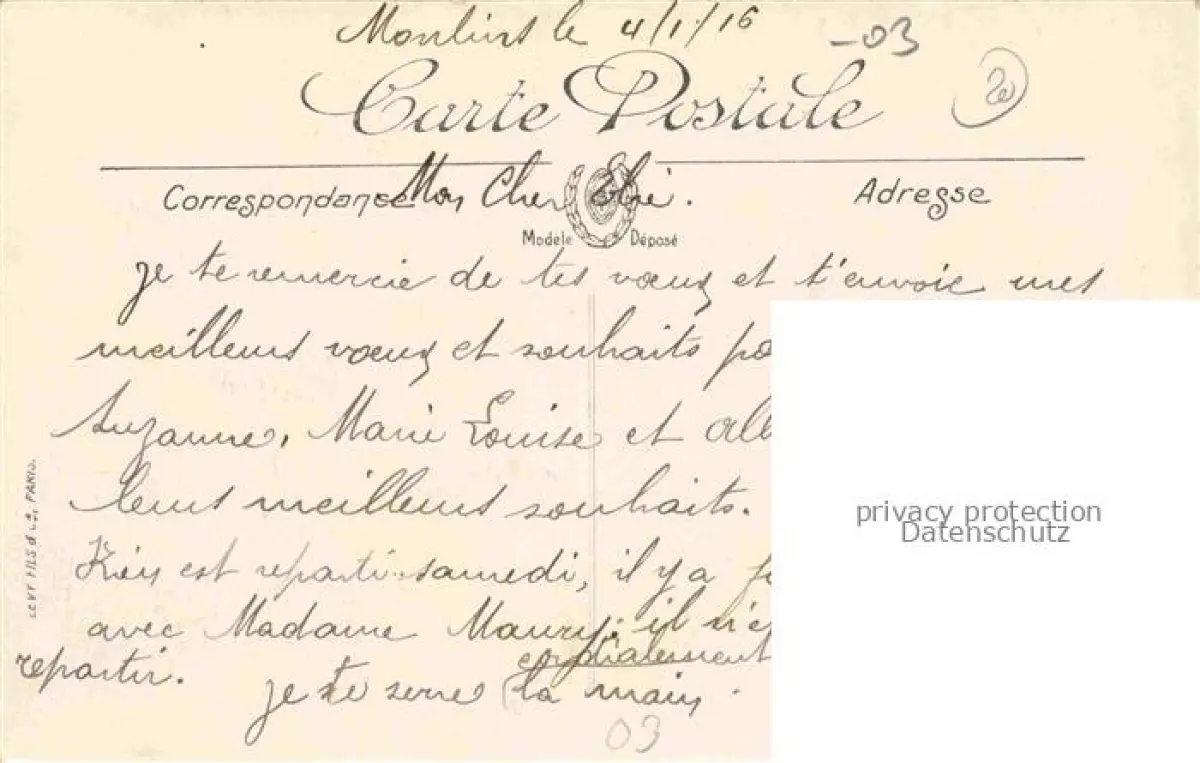 Moulins le 4/1/16
-03
Carte Postale
Correspondance
Adresse
Mon Cher Elie.
Modèle Déposé
je te remercie de tes vœux et t'envoie mes
meilleurs vœux et souhaits po
Suzanne, Marie Louise et All
leurs meilleurs souhaits.
est reparti samedi, il y a
avec Madame Maury, il n'e
repartir.
cordialement
je te serre la main.
LEVY FILS & Cie, PARIS.
03
privacy protection
Datenschutz